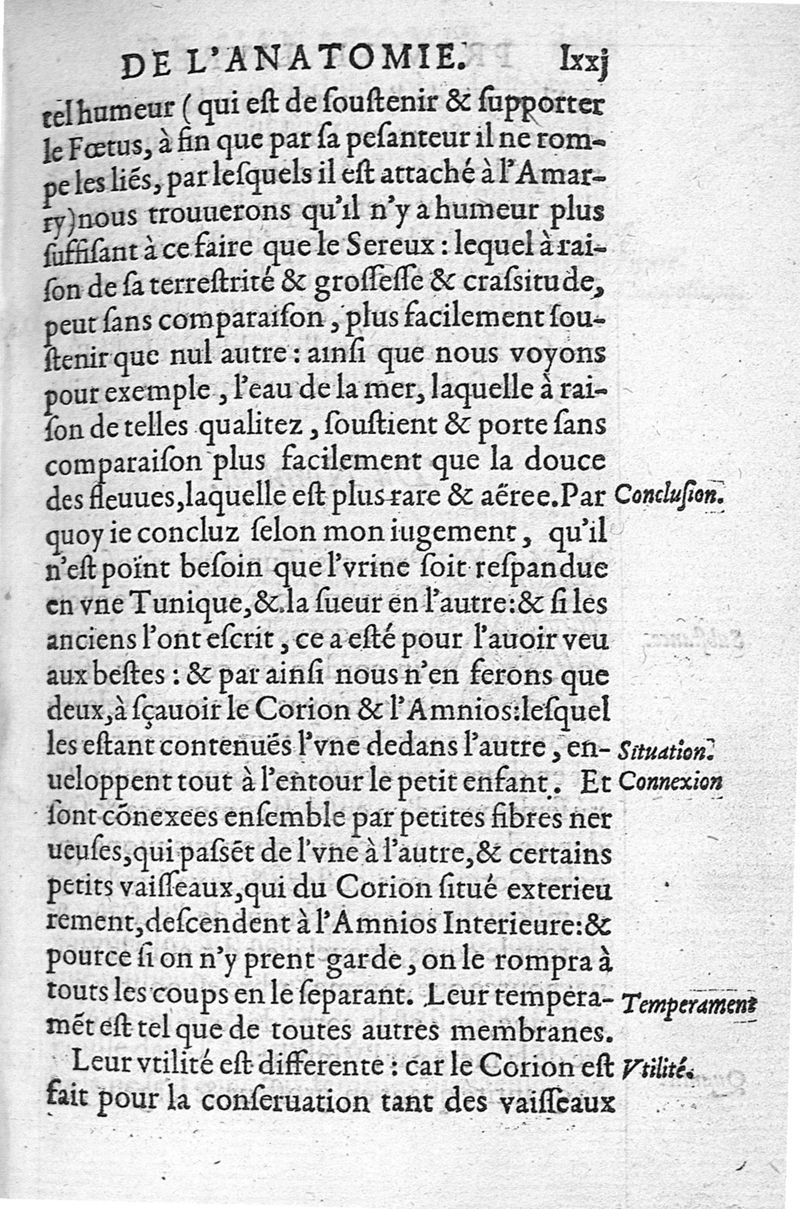 DE L'ANATOMIE. lxxj
tel humeur ( qui eſt de ſouſtenir & ſupporter
le Fœtus, à fin que par ſa peſanteur il ne rom-
pe les liés, par leſquels il eſt attaché à l'Amar-
ry)nous trouuerons qu'il n'y a humeur plus
ſuffiſant à ce faire que le Sereux : lequel à rai-
ſon de ſa terreſtrité & groſſeſſe & craſsitude,
peut ſans comparaiſon , plus facilement ſou-
ſtenir que nul autre : ainſi que nous voyons
pour exemple , l'eau de la mer, laquelle à rai-
ſon de telles qualitez , ſouſtient & porte ſans
comparaiſon plus facilement que la douce
des fleuues,laquelle eſt plus rare & aëree.Par Concluſion.
quoy ie concluz ſelon mon iugement , qu'il
n'eſt point beſoin que l'vrine ſoit reſpandue
en vne Tunique,& la ſueur en l'autre:& ſi les
anciens l'ont eſcrit , ce a eſté pour l'auoir veu
aux beſtes : & par ainſi nous n'en ferons que
deux,à ſçauoir le Corion & l'Amnios:leſquel
les eſtant contenués l'vne dedans l'autre , en- Situation.
ueloppent tout à l'entour le petit enfant. Et Connexion
ſont cõnexees enſemble par petites fibres ner
ueuſes,qui paſsẽt de l'vne à l'autre,& certains
petits vaiſſeaux,qui du Corion ſitué exterieu
rement,deſcendent à l'Amnios Interieure:&
pource ſi on n'y prent garde , on le rompra à
touts les coups en le ſeparant. Leur tempera- Temperament
mẽt eſt tel que de toutes autres membranes.
Leur vtilité eſt differente : car le Corion eſt Vtilité.
fait pour la conſeruation tant des vaiſſeaux